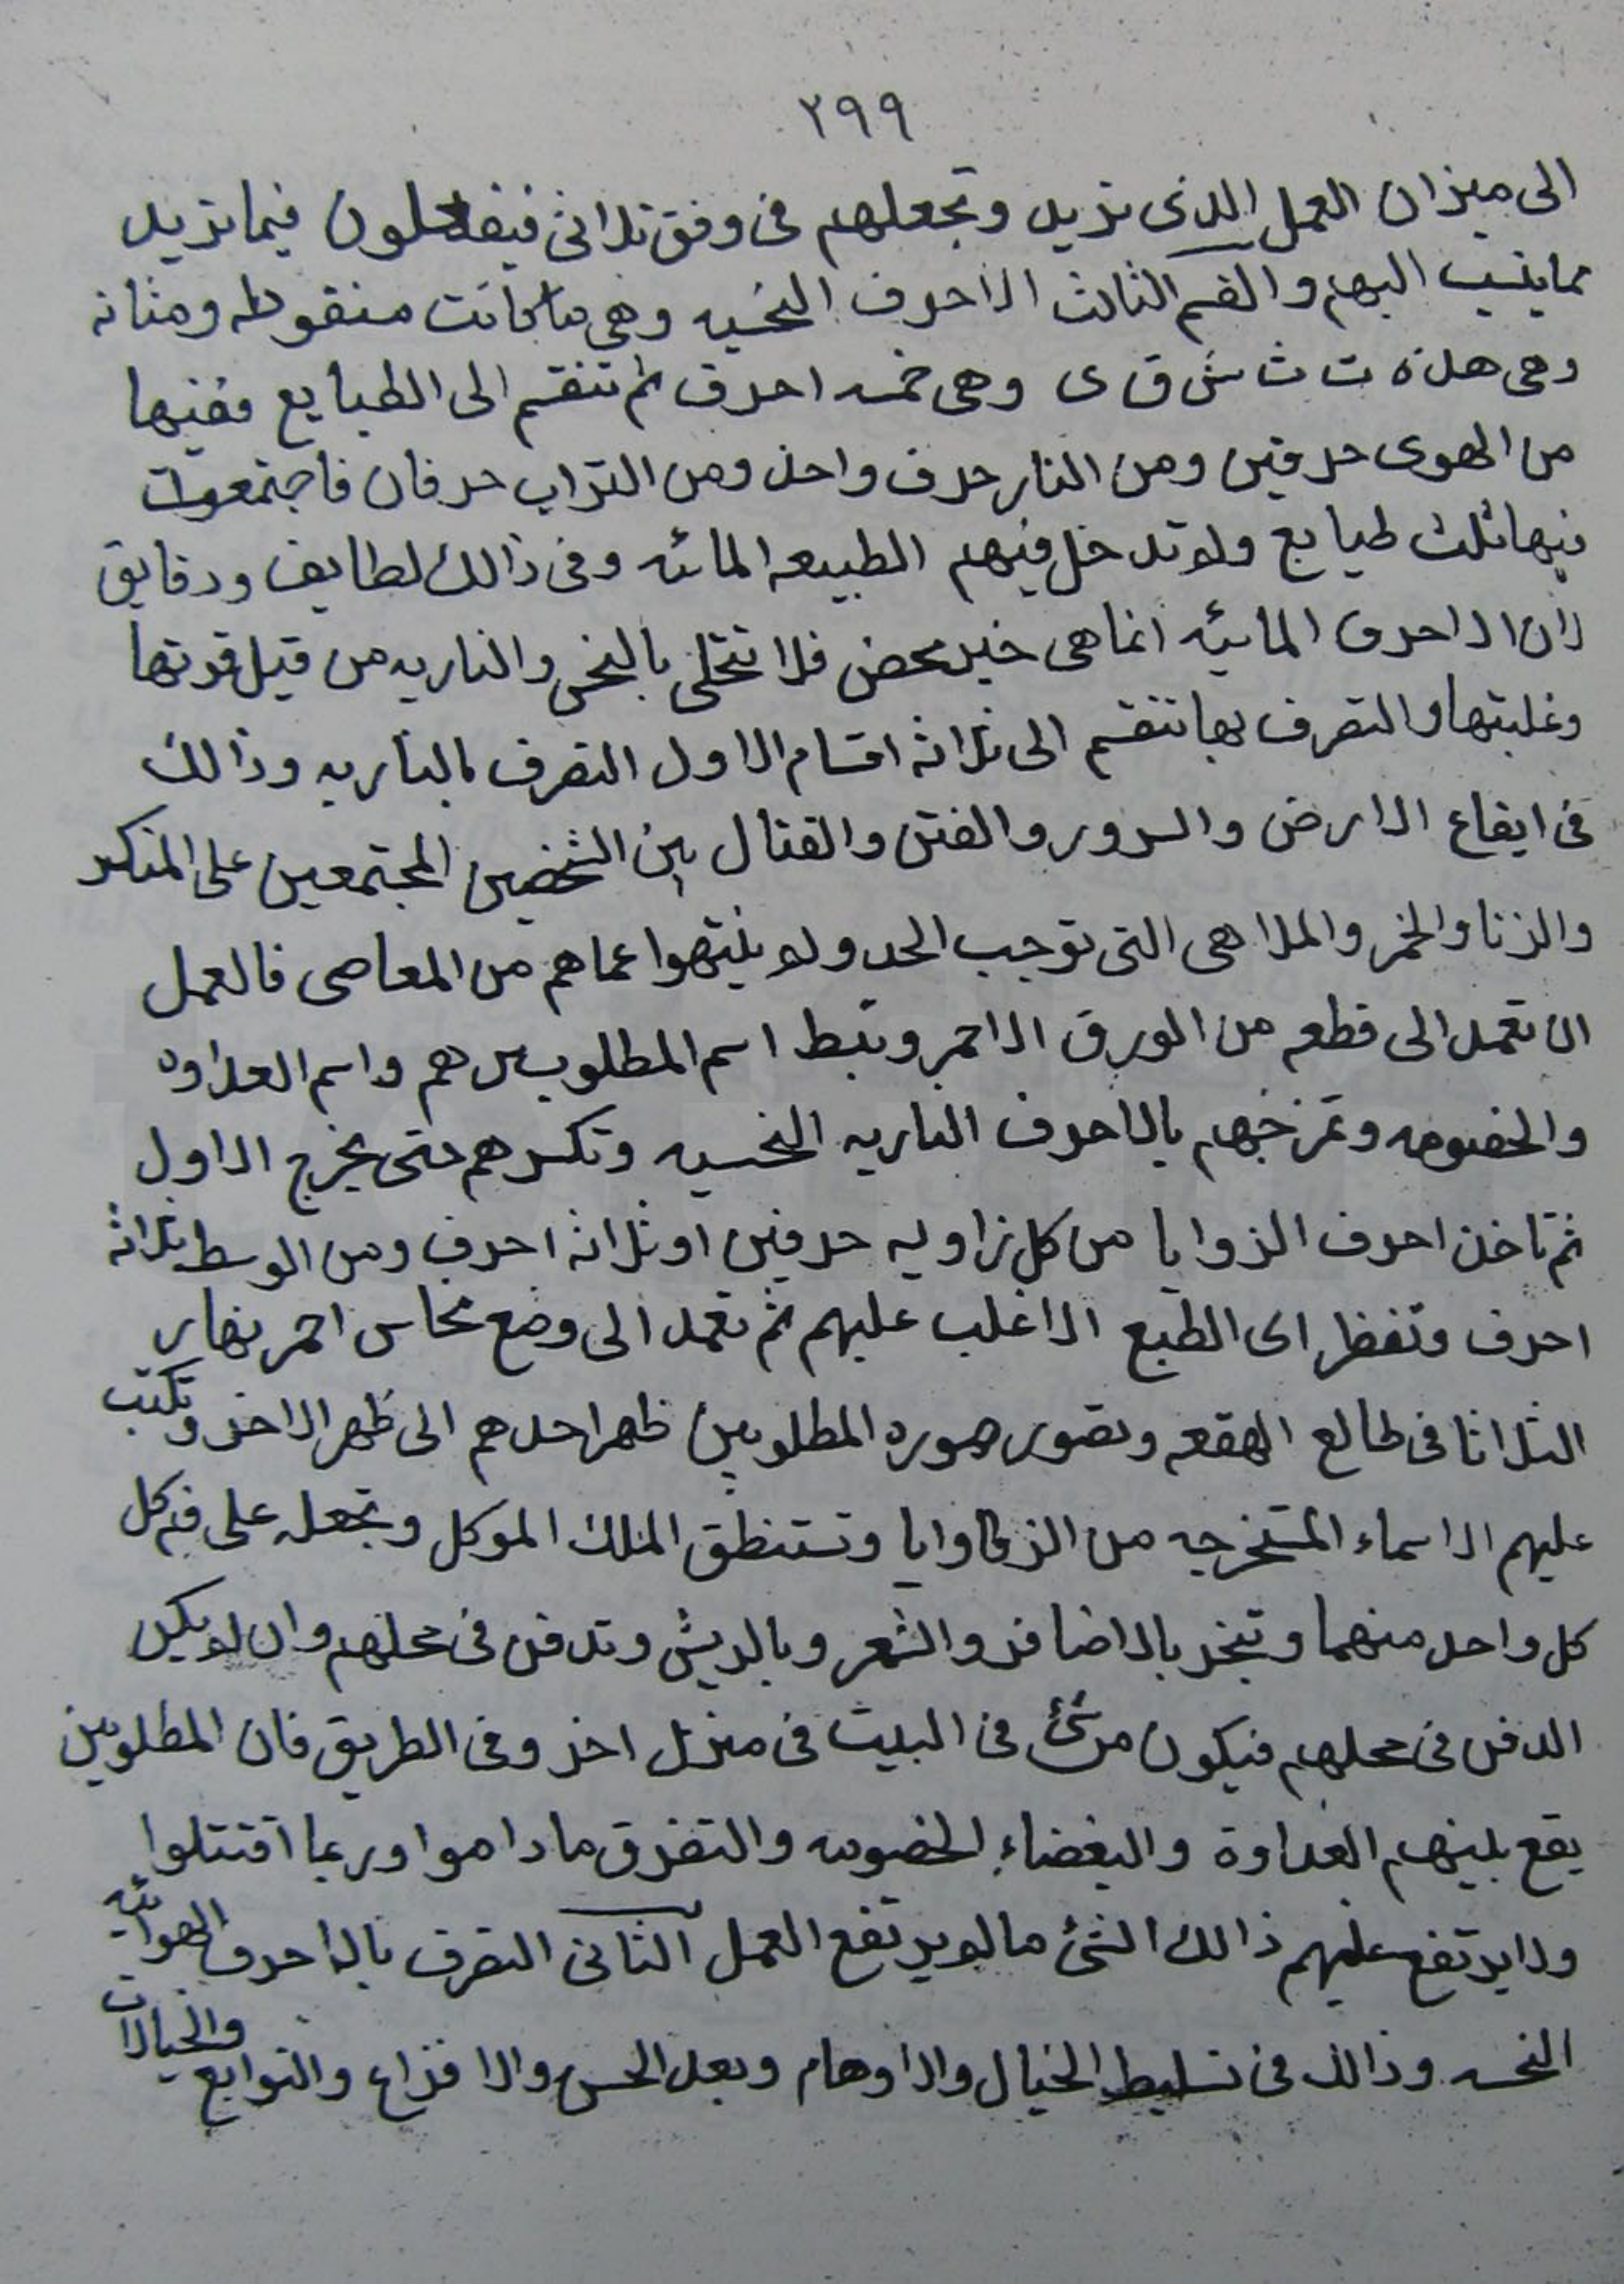 ٢٩٩
الى ميزان العمل الذى تريد وتجعلهم فى وفق ثلاثى فيفعلون فيما تريد
مما ينسب اليهم والقسم الثالث الاحرف النحسيه وهى ما كانت منقوطه ومثانه
وهى هذه ت ث ش ق ى وهى خمسه احرف ثم تنقسم الى الطبايع فمنها
من الهوى حرفين ومن النار حرف واحد ومن التراب حرفان فاجتمعوت
فيها ثلث طبايع ولو تدخل فيهم الطبيعه المائه وفى ذالك لطايف ودقايق
لان الاحرف المائيه انما هى خير محض فلا تتحلى بالنحس والناريه من قبل قوتها
وغلبتها والتصرف بها تنقسم الى ثلاثه اقسام الاول التصرف بالناريه وذالك
فى ايقاع الارض والسرور والفتن والقتال بين الشخصين المجتمعين على المنكر
والزنا والخمر والملاهى التى توجب الحد ولو ينتهوا عماهم من المعاصى فالعمل
ان تعمد الى قطعه من الورق الاحمر وتبسط اسم المطلوبين هم واسم العداوه
والخصومه وتمزجهم بالاحرف الناريه النحسيه وتكسرهم حتى يخرج الاول
ثم تاخذ احرف الزوايا من كل زاويه حرفين او ثلاثه احرف ومن الوسط ثلاثه
احرف وتنظر الى الطبع الاغلب عليهم ثم تعمد الى وضع نحاس احمر نهار
الثلاثا فى طالع الهقعه وتصور صوره المطلوبين ظهر احدهم الى ظهر الاخر وتكتب
عليهم الاسماء المستخرجه من الزوايا وتستنطق الملك الموكل وتجعله على فم كل
كل واحد منهما وتبخر بالاضافر والشعر وبالريش وتدفن فى محلهم وان لو يكن
الدفن فى محلهم فيكون مرشئ فى البيت فى منزل اخر وفى الطريق فان المطلوبين
يقع بينهم العداوة والبغضاء الخصومه والتفرق ما داموا وربما اقتتلوا
ولا يرتفع عليهم ذالك الشئ ما لو يرتفع العمل الثانى التصرف بالاحرف الهوائيه
النحسه وذالك فى تسليط الخيال والاوهام وبعد الحس والافزاع والتوابع والخيالات